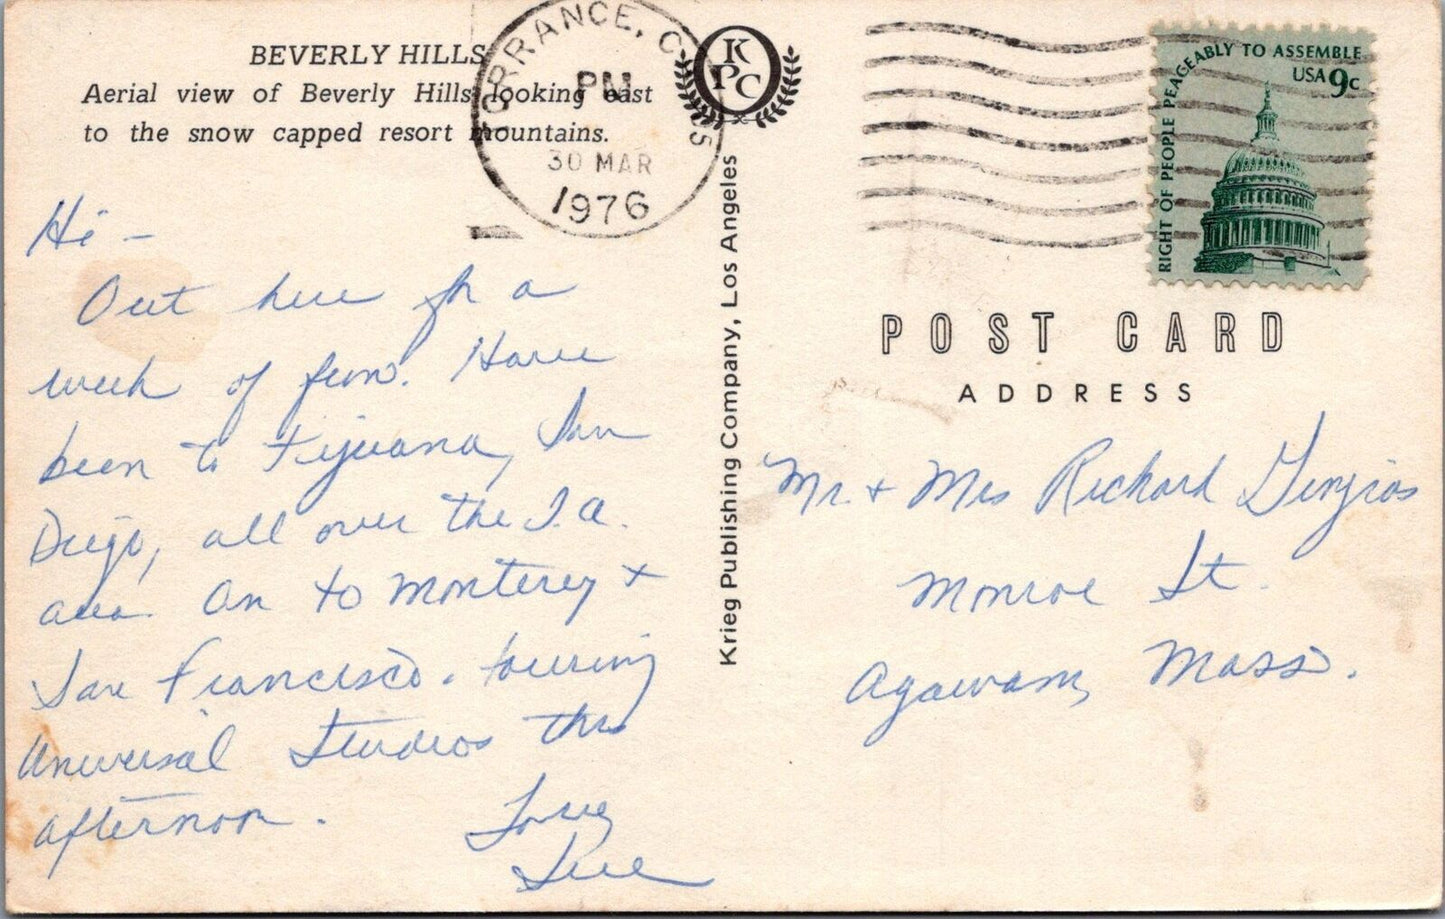 BEVERLY HILLS
Aerial view of Beverly Hills looking east
to the snow capped resort mountains.
TORRANCE, CA 905
PM
30 MAR
1976
KPC
RIGHT OF PEOPLE PEACEABLY TO ASSEMBLE
USA 9c
Krieg Publishing Company, Los Angeles
POST CARD
ADDRESS
Hi -
Out here for a
week of fun. Have
been to Tijuana, San
Diego, all over the L.A.
area. On to Monterey +
San Francisco. touring
Universal Studios this
afternoon.
Love
Sue
Mr. + Mrs Richard
Monroe St.
Agawam, Mass.